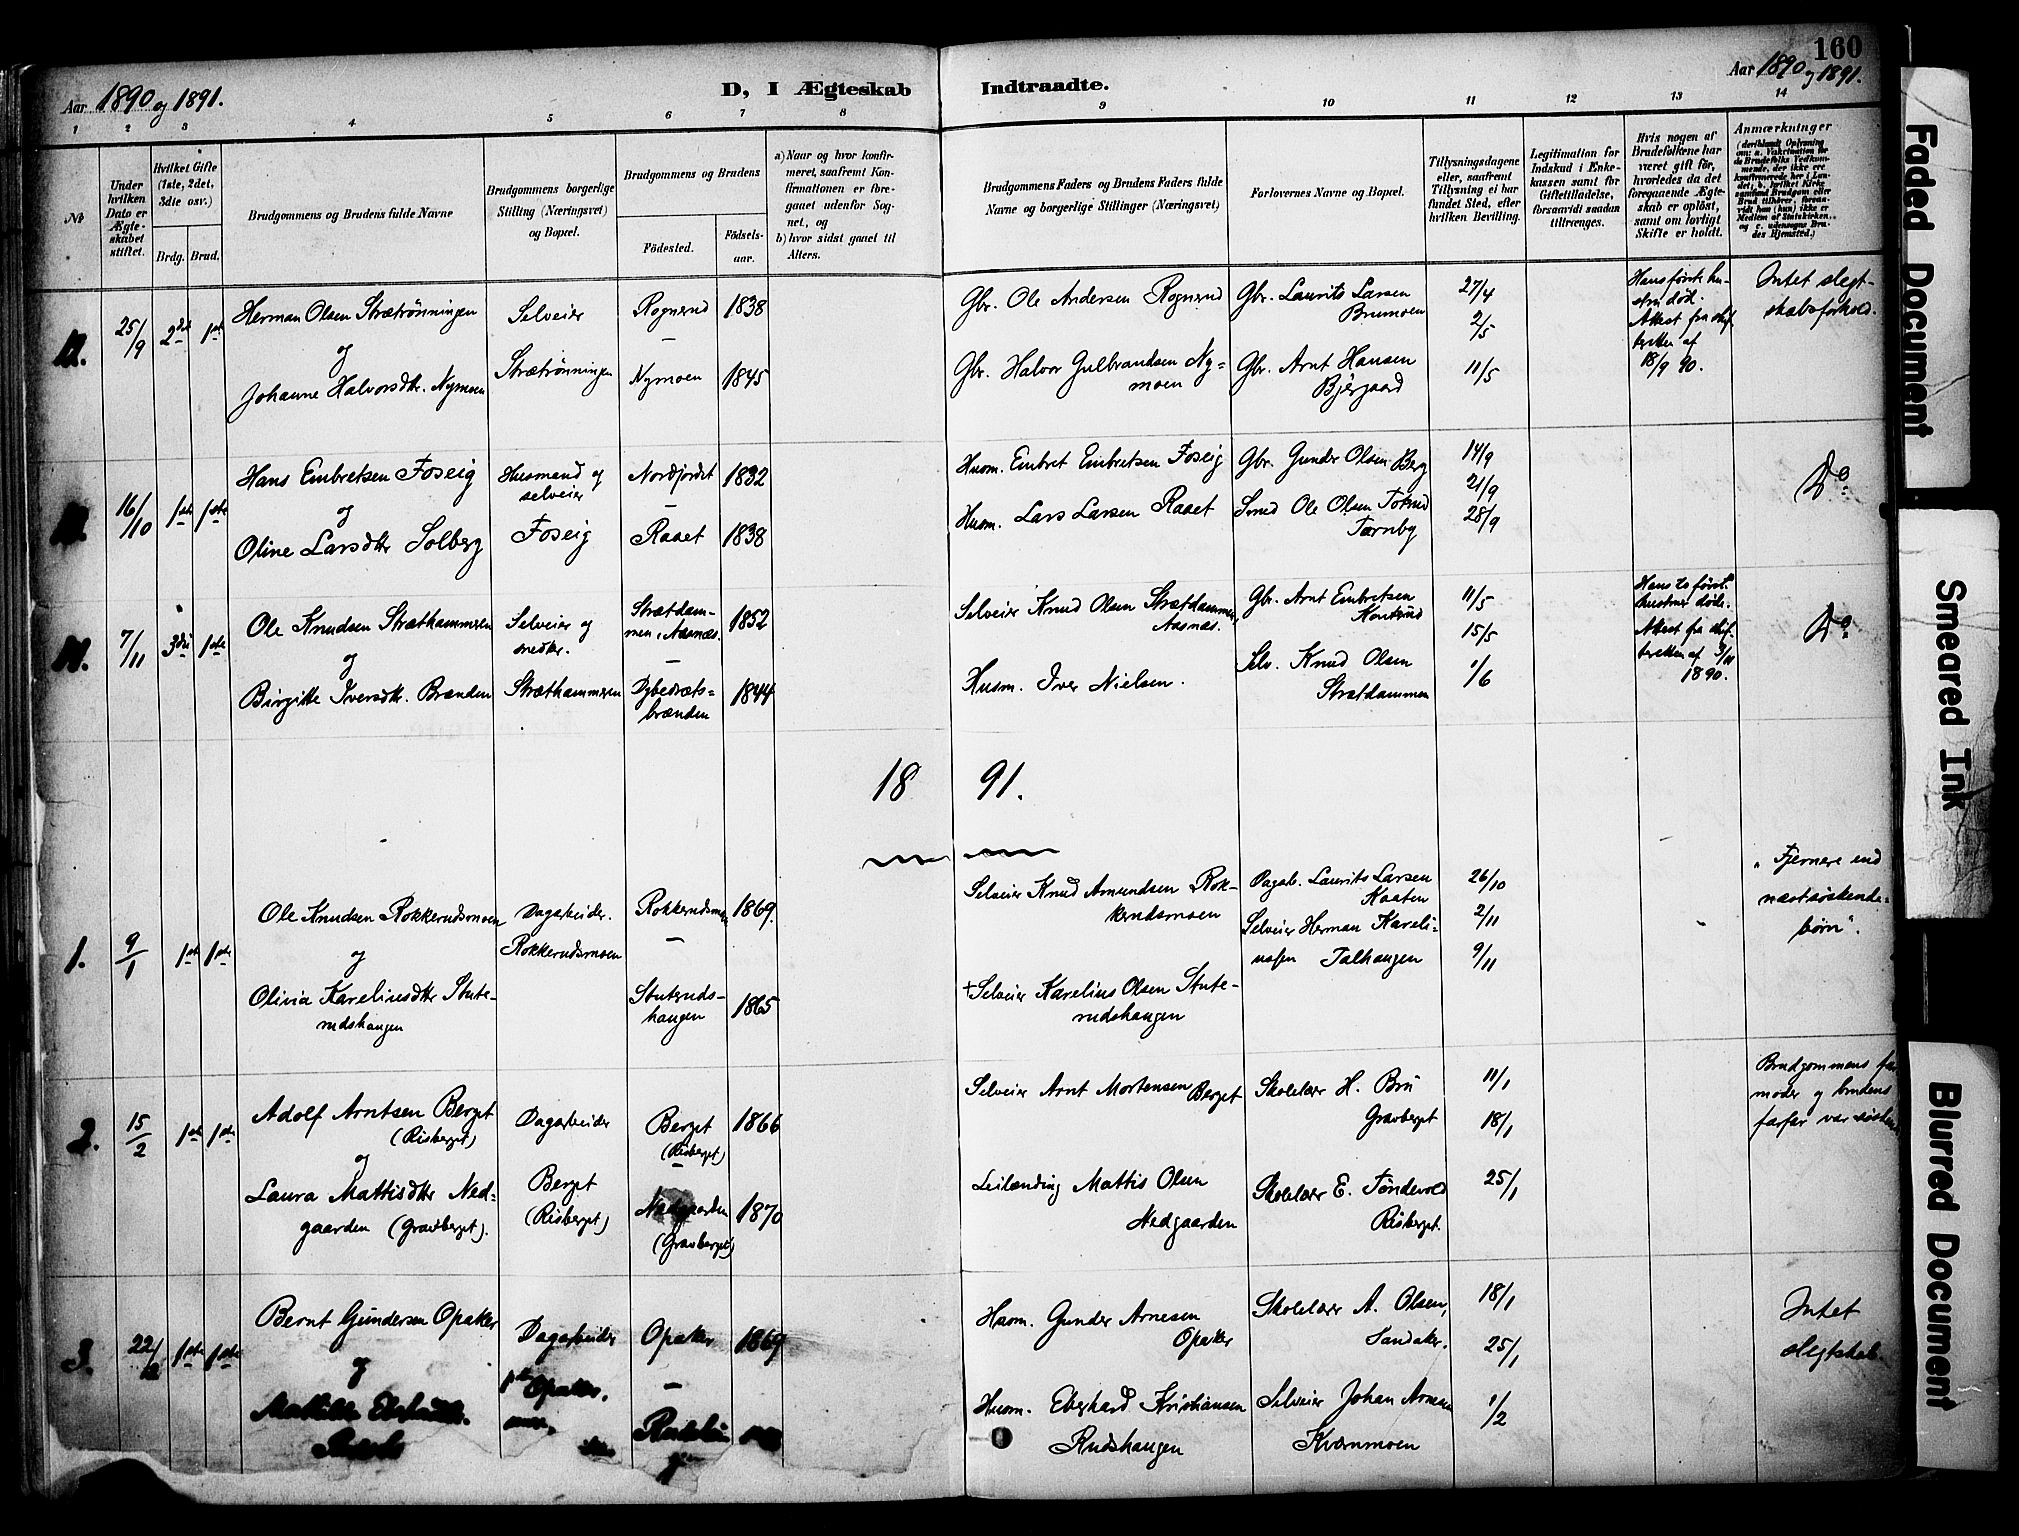 160
Aar 1890 og 1891.
D, I Ægteskab Indtraadte.
Aar 1890 og 1891.
1 2 3 4 5 6 7 8 9 10 11 12 13 14
No
Under hvilken Dato er Ægteskabet stiftet.
Hvilket Gifte (1ste, 2det, 3die osv.)
Brdg. Brud.
Brudgommens og Brudens fulde Navne
Brudgommens borgerlige Stilling (Næringsvei) og Bopæl.
Brudgommens og Brudens
Fødested. Fødselsaar.
a) Naar og hvor konfirmeret, saafremt Konfirmationen er foregaaet udenfor Sognet, og
b) hvor sidst gaaet til Alters.
Brudgommens Faders og Brudens Faders fulde Navne og borgerlige Stillinger (Næringsvei)
Forlovernes Navne og Bopæl.
Tillysningsdagene eller, saafremt Tillysning ei har fundet Sted, efter hvilken Bevilling.
Legitimation for Indskud i Enkekassen samt for Giftetilladelse, forsaavidt saadan tiltrænges.
Hvis nogen af Brudefolkene har været gift før, hvorledes da det foregaaende Ægteskab er opløst, samt om lovligt Skifte er holdt.
Anmærkninger
12. 25/9 2det 1ste
Herman Olsen Strætrønningen
og
Johanne Halvorsdtr. Nymoen
Selveier
Strætrønningen
Rognerud 1838
Nymoen 1845
Gbr. Ole Andersen Rognerud
Gbr. Halvor Gulbrandsen Nymoen
Gbr. Laurits Larsen Brumoen
Gbr. Arnt Hansen Bjørgaard
27/4
2/5
11/5
Hans første hustru død.
Attest fra skifteretten af
18/9 90.
Intet slegtskabsforhold.
13. 16/10 1ste 1ste
Hans Embretsen Foseig
og
Oline Larsdtr Solberg
Husmand og selveier
Foseig
Nordfjordet 1832
Raaet 1838
Husm. Embret Embretsen Foseig
Husm. Lars Larsen Raaet
Gbr. Gunder Olsen Berg
Smed Ole Olsen
Tørnby
14/9
21/9
28/9
Do.
14. 7/11 3die 1ste
Ole Knudsen Stræthammeren
og
Birgitte Iversdtr. Brænden
Selveier og snedker.
Stræthammeren
Strætdammen, Aasnæs. 1852
brænden 1844
Selveier Knud Olsen Strætdammen, Aasnæs.
Husm. Iver Nielsen.
Gbr. Arnt Embretsen
Selv. Knud Olsen
Strætdammen
11/5
15/5
1/6
Hans to første hustruer døde.
Attest fra skifteretten af 3/11
1890.
Do.
18 91.
1. 9/1 1ste 1ste
Ole Knudsen Rokkerudsmoen
og
Olivia Kareliusdtr Stuterudshaugen
Dagarbeider.
Rokkerudsmoen
Rokkerudsmoen 1869.
Stuterudshaugen 1865
Selveier Knud Amundsen Rokkerudsmoen
†Selveier Karelius Olsen Stuterudshaugen
Dagarb. Laurits Larsen
Kaaten
Selveier Herman Kareliussen Talhaugen
26/10
2/11
9/11
"Fjernere end næstsøskendebørn".
2. 15/2 1ste 1ste
Adolf Arntsen Berget
(Risberget)
og
Laura Mattisdtr Nedgaarden (Gravberget).
Dagarbeider
Berget
(Risberget)
Berget 1866
(Risberget)
Nedgaarden 1870
(Gravberget)
Selveier Arnt Mortensen Berget
Leilænding Mattis Olsen
Nedgaarden
Skolelær H. Bru
Gravberget
Skolelær E. Tøndevold
Risberget.
11/1
18/1
25/1
Brudgommens farmoder og brudens farfar var søskende
3. 22/2 1ste 1ste
Bernt Gundersen Opaker
og
Mathilde
Dagarbeider
Opaker.
Opaker 1869
Husm. Gunder Arnesen
Opaker
Husm. Eberhard Kristiansen
Rudshaugen
Skolelær A. Olsen,
Sandaker.
Selveier Johan Arnesen
Kvernmoen
18/1
25/1
1/2
Intet slegtskab.
Faded Document
Smeared Ink
Blurred Document